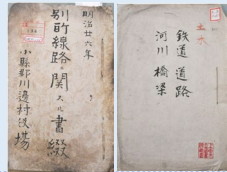 明治廿六年
別所線路ニ関スル書綴
小縣郡川邊村役場
土木
鉄道 道路
河川 橋梁